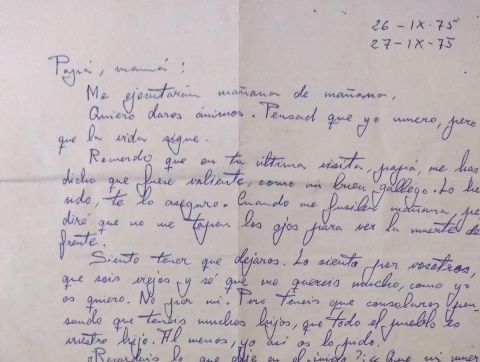 26 - IX - 75
27 - IX - 75
Papá, mamá:
Me ejecutarán mañana de mañana.
Quiero daros ánimos. Pensad que yo muero, pero
que la vida sigue.
Recuerdo que en tu última visita, papá, me has
dicho que fuese valiente, como un buen gallego. Lo he
sido, te lo aseguro. Cuando me fusilen mañana pe
diré que no me tapen los ojos para ver la muerte de
frente.
Siento tener que dejaros. Lo siento por vosotros,
que sois viejos y sé que me quereis mucho, como yo
os quiero. No por mí. Pero teneis que consolaros pen
sando que teneis muchos hijos, que todo el pueblo es
vuestro hijo. Al menos, yo así os lo pido.
¿Recordais lo que dije en el juicio? Que mi muer